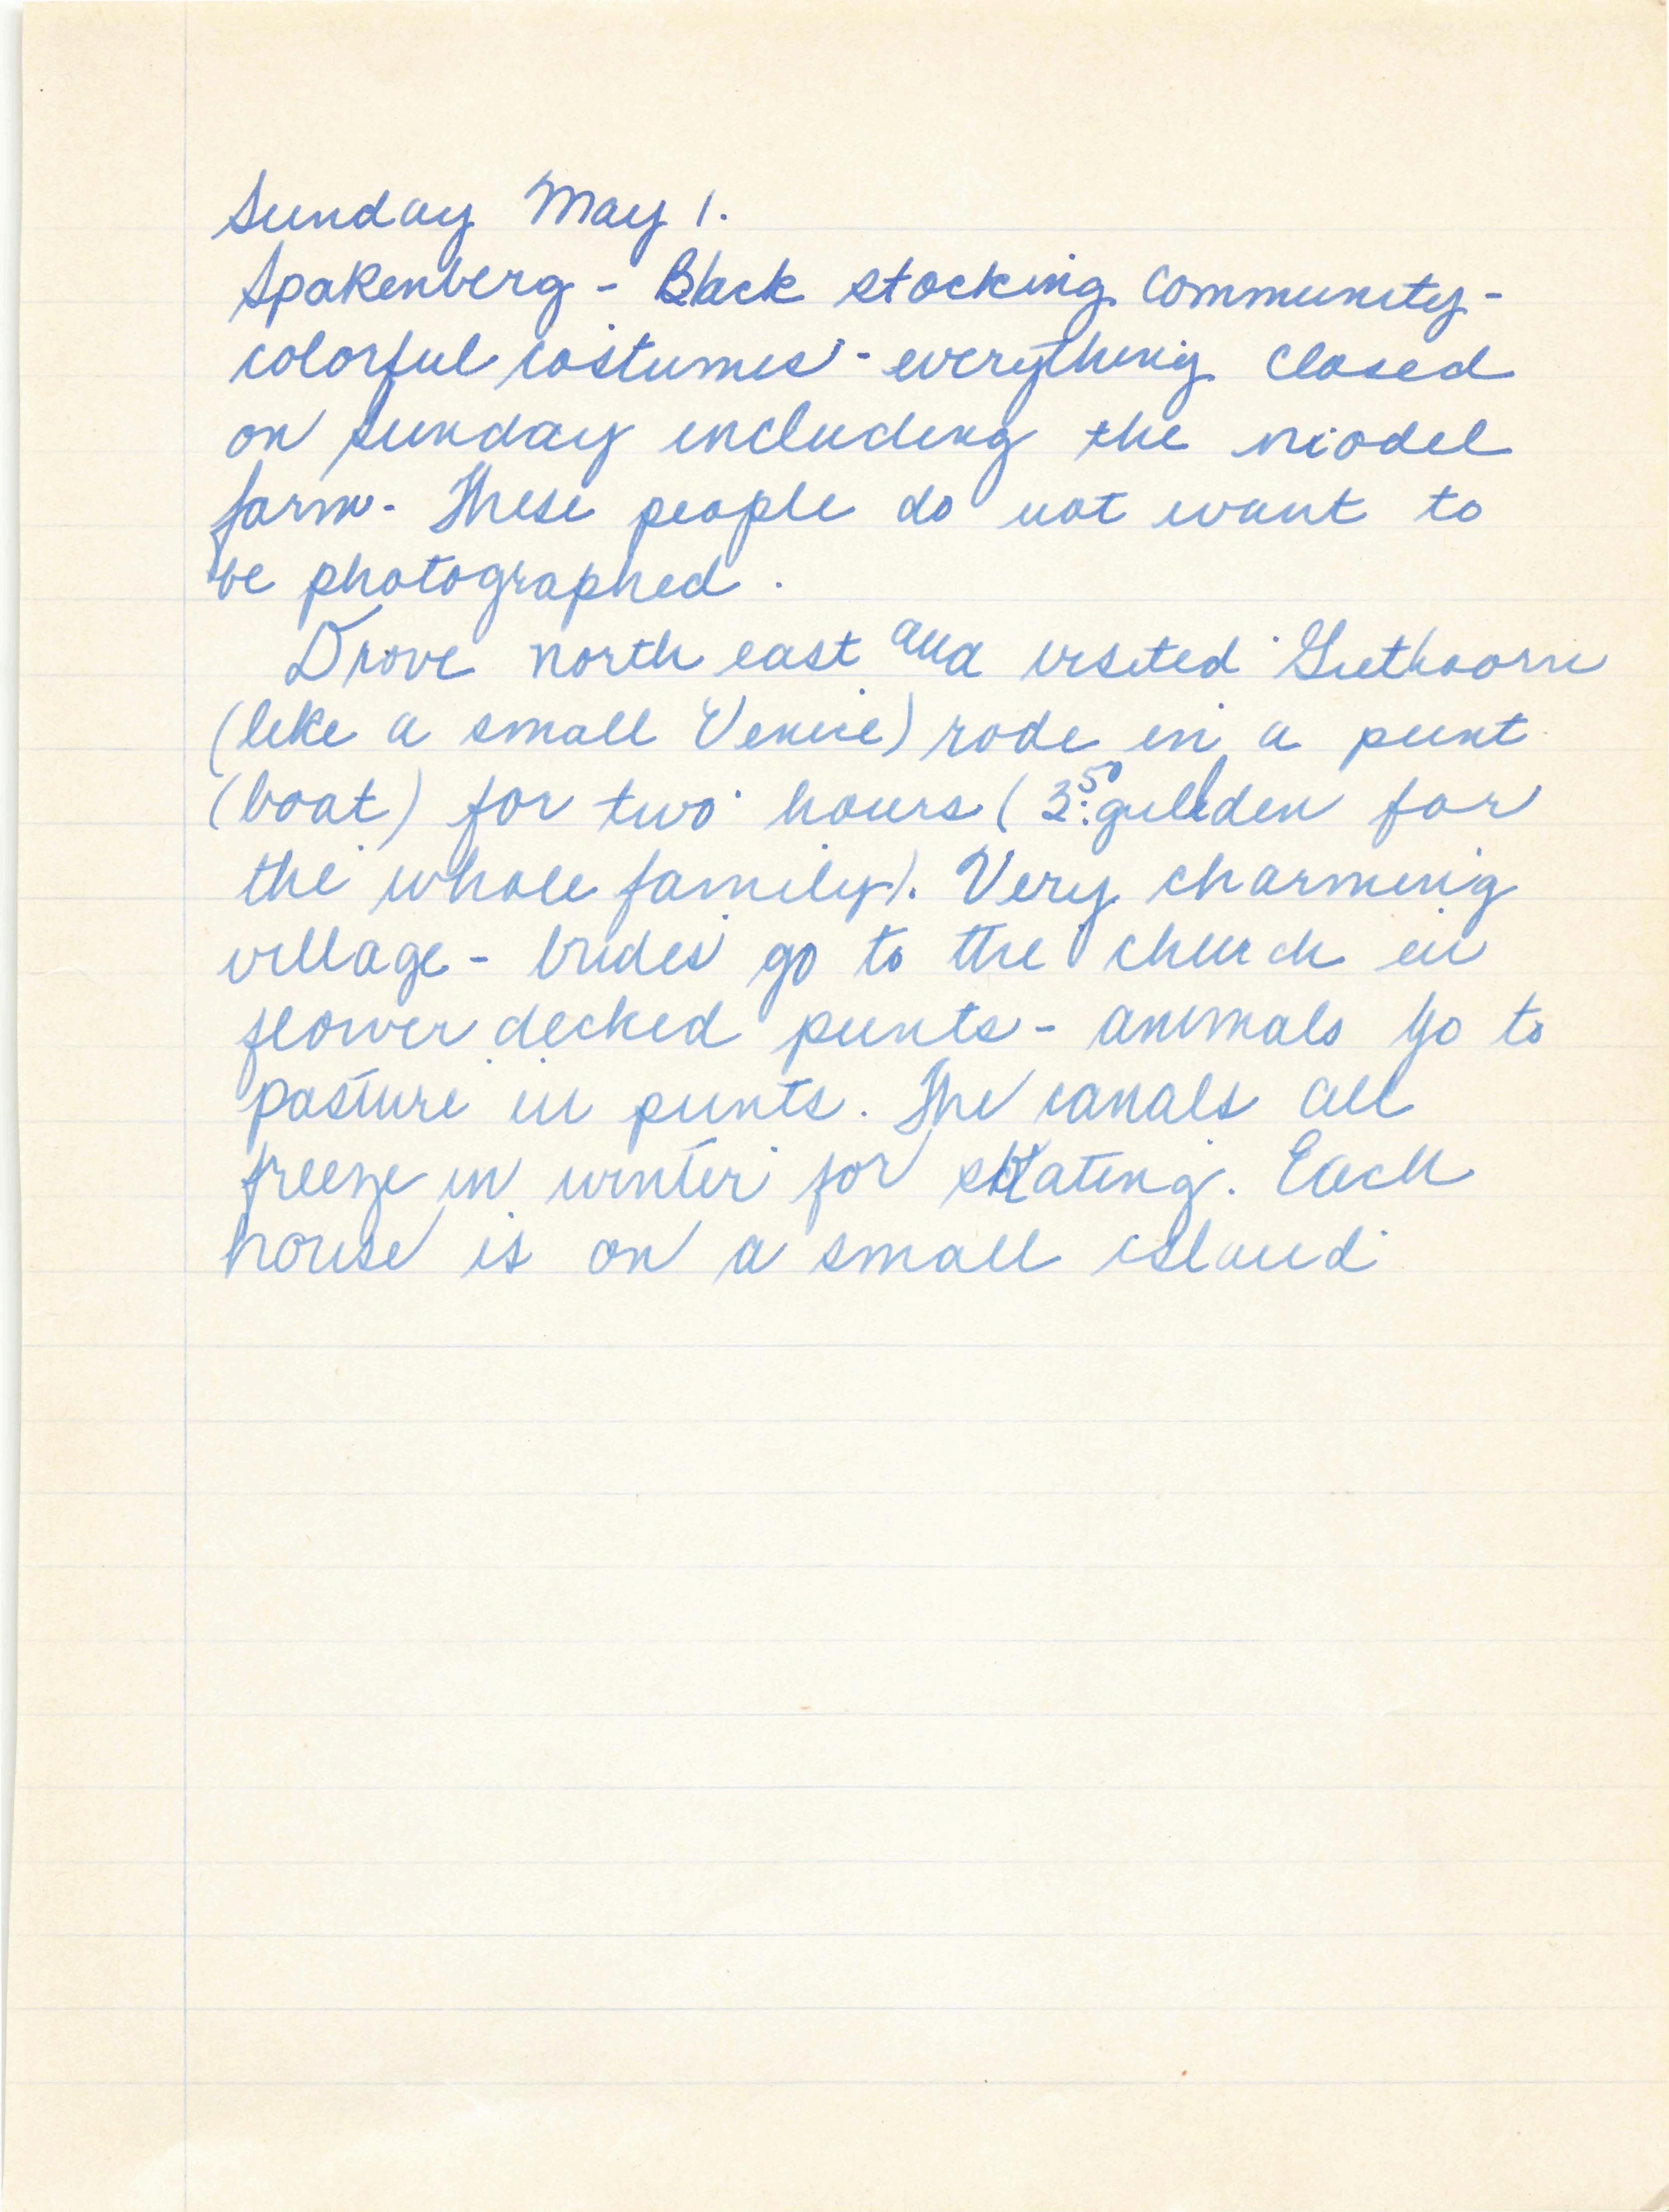 Sunday May 1.
Spakenberg - Black stocking community -
colorful costumes - everything closed
on Sunday including the model
farm - These people do not want to
be photographed.
Drove north east and visited Giethoorn
(like a small Venice) rode in a punt
(boat) for two hours (3.50 gulden for
the whole family). Very charming
village - brides go to the church in
flower decked punts - animals go to
pasture in punts. The canals all
freeze in winter for skating. Each
house is on a small island